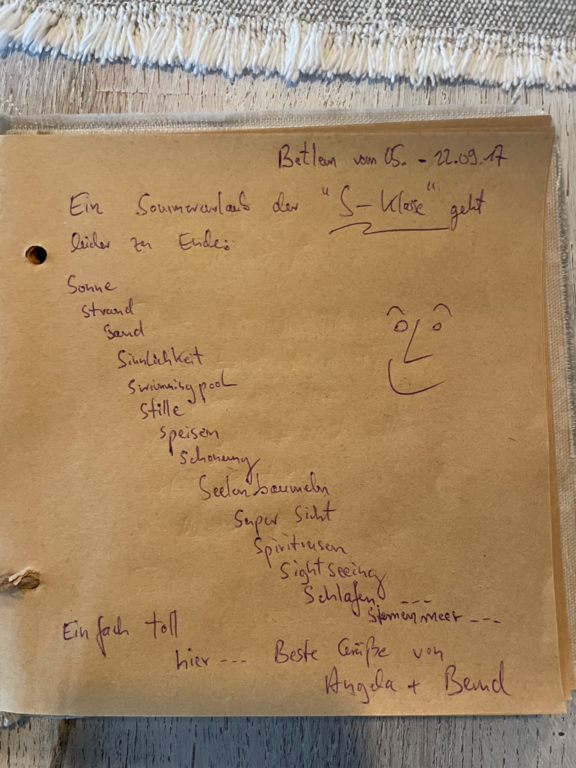 Betlem vom 05. - 22.09.17
Ein Sommerurlaub der "S-Klasse" geht
leider zu Ende:
Sonne
Strand
Sand
Sinnlichkeit
Swimmingpool
Stille
Speisen
Schonung
Seelenbaumeln
Super Sicht
Spirituosen
Sightseeing
Schlafen ---
Sternenmeer ---
Einfach toll
hier --- Beste Grüße von
Angela + Bernd